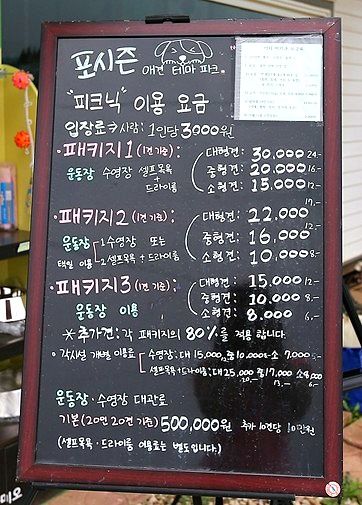 포시즌 애견 테마 파크.
"피크닉" 이용 요금
입장료→ 사람: 1인당 3000원
·패키지1 (1견 기준): 대형견: 30,000 24-
운동장 수영장 셀프목욕 + 드라이룸 중형견: 20,000 16-
소형견: 15,000 12-
·패키지2 (1견 기준): 대형견: 22,000 17,-
운동장 1수영장 또는 중형견: 16,000 12-
택일 이용 2셀프목욕 + 드라이룸 소형견: 10,000 8-
·패키지3 (1견 기준): 대형견: 15.000 12,-
운동장 이용 중형견: 10.000 8,-
소형견: 8.000 6,-
※추가견: 각 패키지의 80%를 적용 합니다.
각시설 개별 이용료 수영장: 대 15,000 중 10,000 소 7,000
셀프목욕+드라이룸: 대 25,000 중 17,000 소 8,000
20,- 13,- 6,-
운동장·수영장 대관료
기본(20인 20견 기준) 500,000원 추가 10견당 10만원
(셀프목욕·드라이룸 이용료는 별도입니다.)